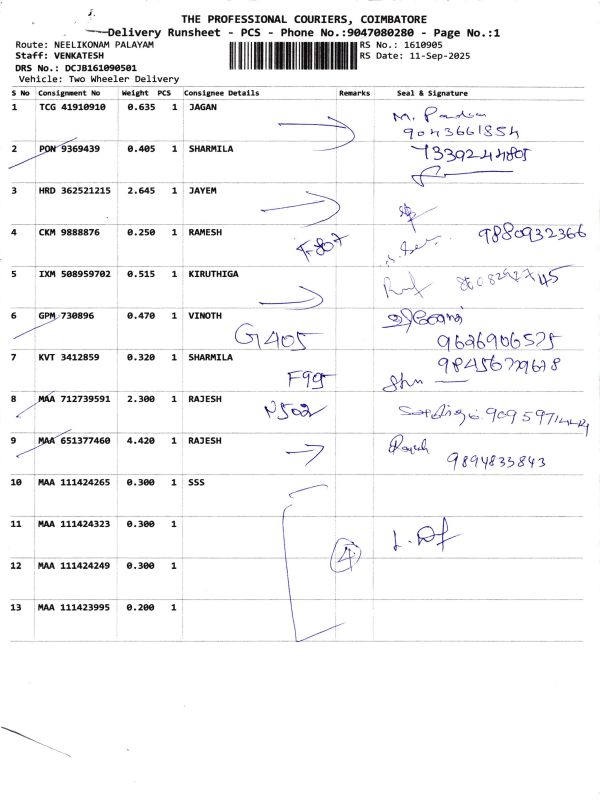 THE PROFESSIONAL COURIERS, COIMBATORE
Delivery Runsheet - PCS - Phone No.:9047080280 - Page No.:1
Route: NEELIKONAM PALAYAM RS No.: 1610905
Staff: VENKATESH RS Date: 11-Sep-2025
DRS No.: DCJB161090501
Vehicle: Two Wheeler Delivery
S No Consignment No Weight PCS Consignee Details Remarks Seal & Signature
1 TCG 41910910 0.635 1 JAGAN
9043661854
2 PON 9369439 0.405 1 SHARMILA 7339244805
3 HRD 362521215 2.645 1 JAYEM
4 CKM 9888876 0.250 1 RAMESH F807 9880932366
5 IXM 508959702 0.515 1 KIRUTHIGA
6 GPM 730896 0.470 1 VINOTH
G405 9626906575
7 KVT 3412859 0.320 1 SHARMILA
F995
8 MAA 712739591 2.300 1 RAJESH N502
9 MAA 651377460 4.420 1 RAJESH
9894833843
10 MAA 111424265 0.300 1 SSS
11 MAA 111424323 0.300 1
12 MAA 111424249 0.300 1 4
13 MAA 111423995 0.200 1